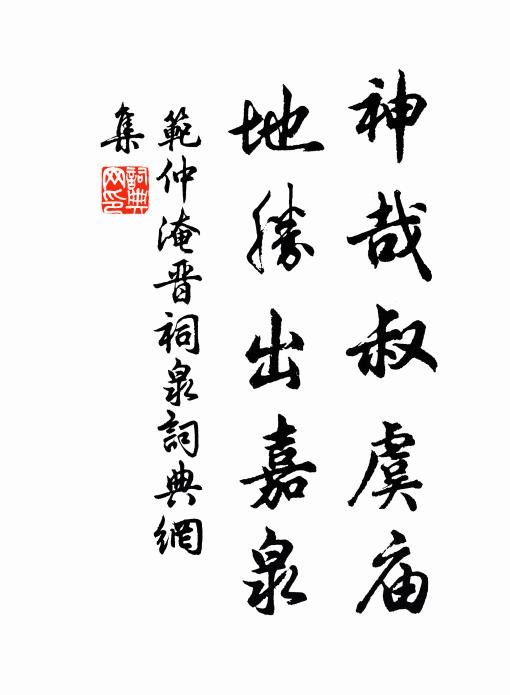 神哉叔虞庙
地勝出嘉泉
範仲淹晋祠泉詞典網
集
詞典
网印